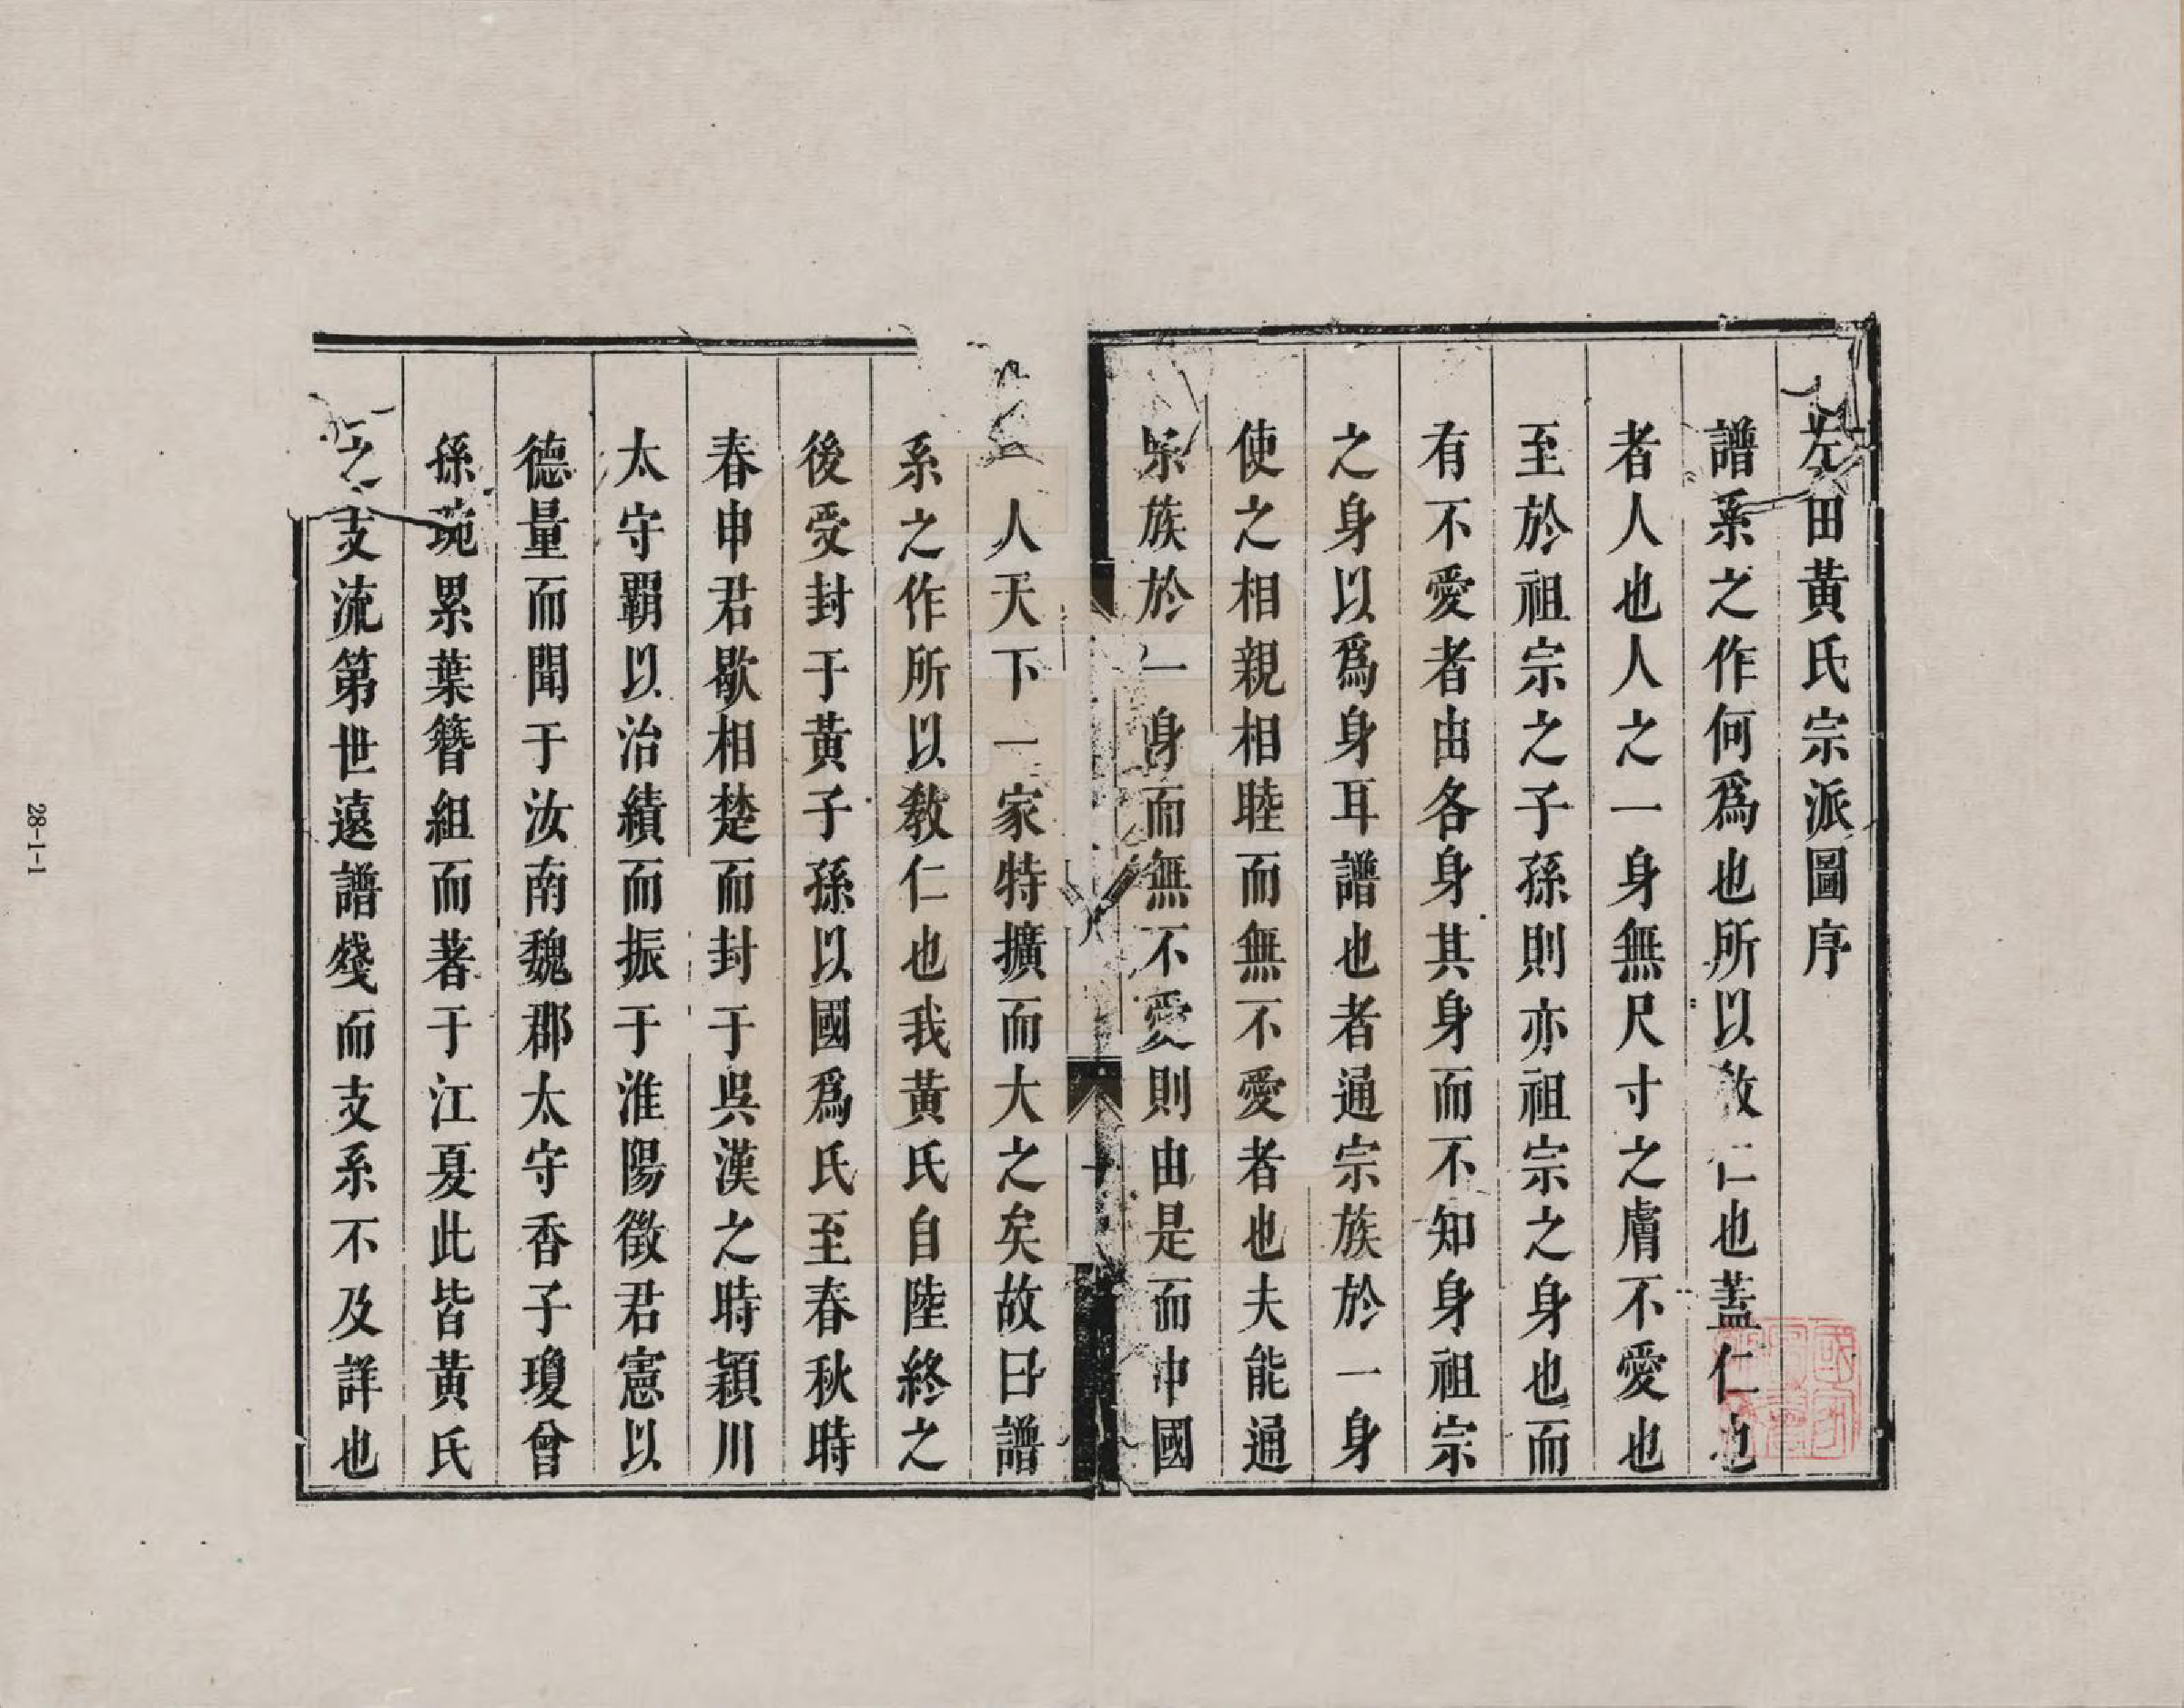 左田黃氏宗派圖序
譜系之作何爲也所以教仁也蓋仁也
者人也人之一身無尺寸之膚不愛也
至於祖宗之子孫則亦祖宗之身也而
有不愛者由各身其身而不知身祖宗
之身以爲身耳譜也者通宗族於一身
使之相親相睦而無不愛者也夫能通
宗族於一身而無不愛則由是而中國
一人天下一家特擴而大之矣故曰譜
系之作所以教仁也我黃氏自陸終之
後受封于黃子孫以國爲氏至春秋時
春申君歇相楚而封于吳漢之時潁川
太守霸以治績而振于淮陽徵君憲以
德量而聞于汝南魏郡太守香子瓊曾
孫琬累葉簪組而著于江夏此皆黃氏
之支流第世遠譜殘而支系不及詳也
28-1-1